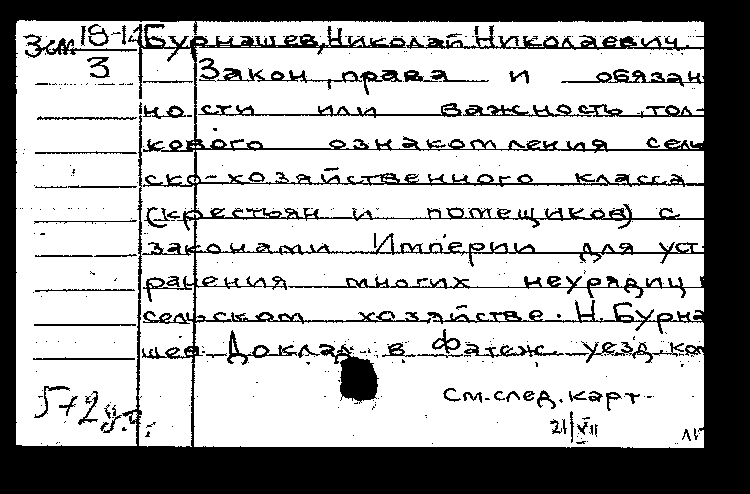 Зсм 18-14 Бурнашев, Николай Николаевич.
3 Закон, права и обязан
ности или важность тол-
кового ознакомления сель
ско-хозяйственного класса
(крестьян и помещиков) с
законами Империи для уст-
ранения многих неурядиц в
сельском хозяйстве. Н. Бурна
шев. Доклад в Фатеж. уезд. ком
см. след. карт-
21/XII